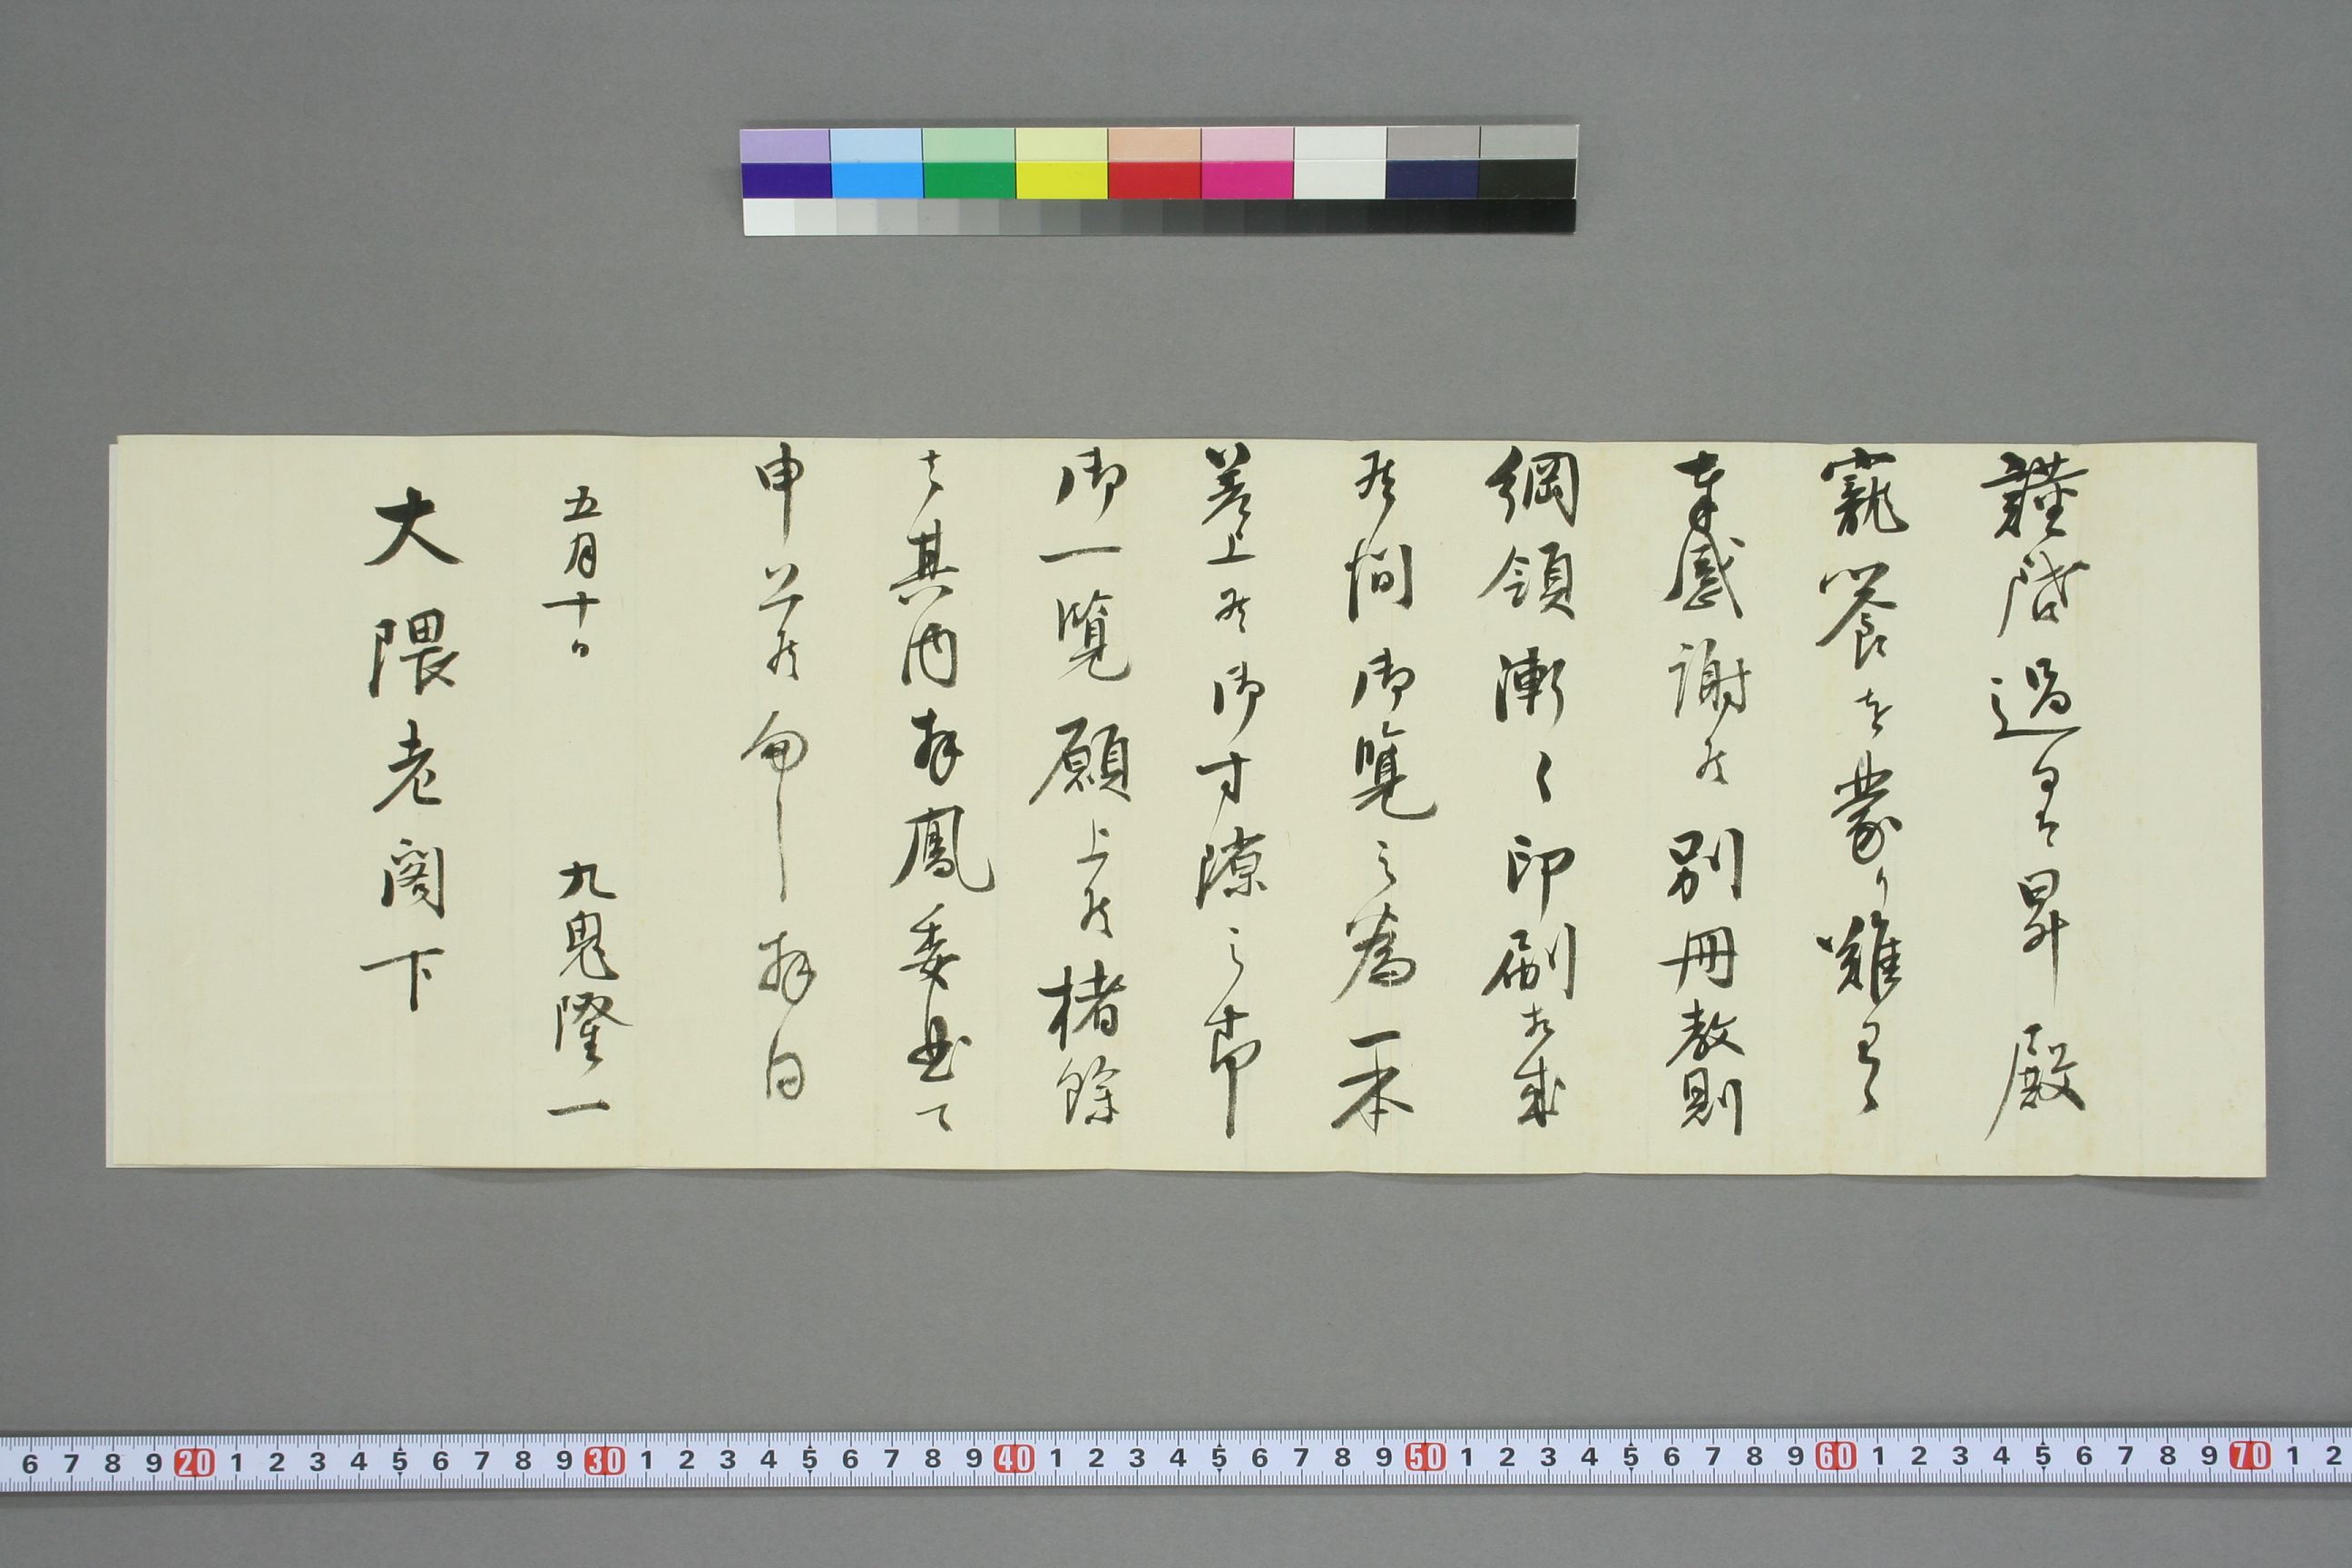 謹啓過日は昇殿
寵餐を蒙り難有
奉感謝候別冊教則
綱領漸く印刷出来
候間御覧之為一本
差上候御寸隙之節
御一覧願上候楮餘
は其内拝鳳委曲可
申上候匆々拝白
五月十日
九鬼隆一
大隈老閣下
6 7 8 9 20 1 2 3 4 5 6 7 8 9 30 1 2 3 4 5 6 7 8 9 40 1 2 3 4 5 6 7 8 9 50 1 2 3 4 5 6 7 8 9 60 1 2 3 4 5 6 7 8 9 70 1 2